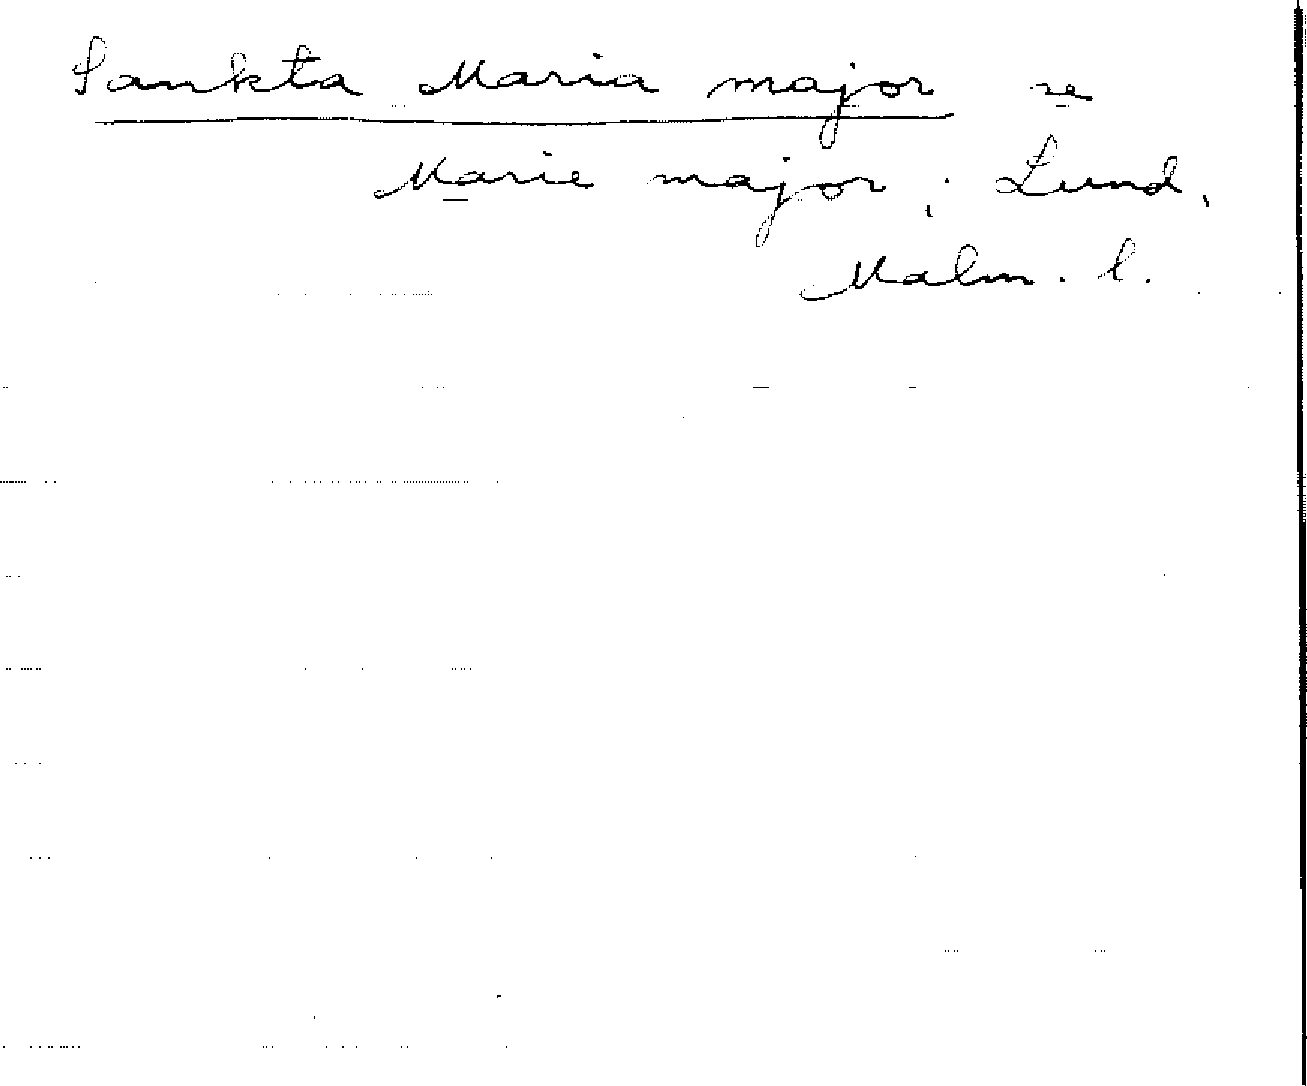 Sankta Maria major se
Marie major; Lund,
Malm. l.